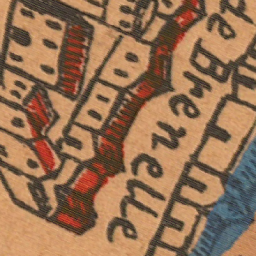 de Brenelle